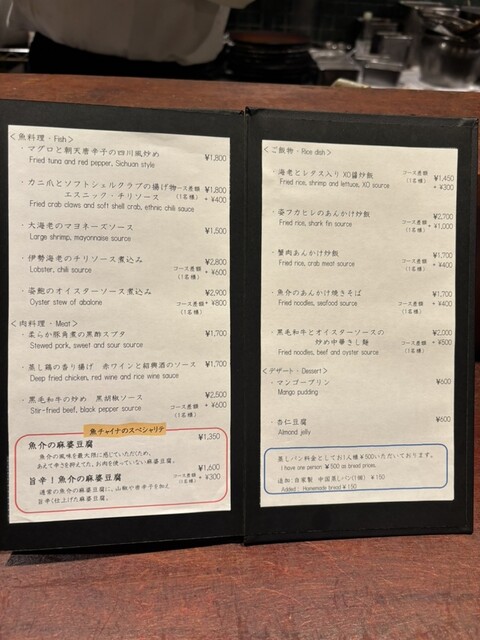 ＜魚料理・Fish＞
・マグロと朝天唐辛子の四川風炒め ¥1,800
Fried tuna and red pepper, Sichuan style
・カニ爪とソフトシェルクラブの揚げ物 コース差額 ¥1,800
エスニック・チリソース (1名様) + ¥400
Fried crab claws and soft shell crab, ethnic chili sauce
・大海老のマヨネーズソース ¥1,500
Large shrimp, mayonnaise source
・伊勢海老のチリソース煮込み ¥2,800
Lobster, chili source コース差額 + ¥600
(1名様)
・姿鮑のオイスターソース煮込み ¥2,900
Oyster stew of abalone コース差額 + ¥800
(1名様)
＜肉料理・Meat＞
・柔らか豚角煮の黒酢スブタ ¥1,700
Stewed pork, sweet and sour source
・蒸し鶏の香り揚げ 赤ワインと紹興酒のソース ¥1,700
Deep fried chicken, red wine and rice wine sauce
・黒毛和牛の炒め 黒胡椒ソース ¥2,500
Stir-fried beef, black pepper source コース差額 + ¥600
(1名様)
魚チャイナのスペシャリテ
魚介の麻婆豆腐 ¥1,350
魚介の風味を最大限に感じていただくため、
あえて辛さを抑えてた、お肉を使っていない麻婆豆腐。
¥1,600
旨辛！魚介の麻婆豆腐 コース差額 + ¥300
(1名様)
通常の魚介の麻婆豆腐に、山椒や唐辛子を加え
旨辛く仕上げた麻婆豆腐。
＜ご飯物・Rice dish＞
・海老とレタス入りXO醤炒飯 コース差額 ¥1,450
Fried rice, shrimp and lettuce, XO source (1名様) + ¥300
・姿フカヒレのあんかけ炒飯 ¥2,700
Fried rice, shark fin source コース差額 + ¥1,000
(1名様)
・蟹肉あんかけ炒飯 ¥1,700
Fried rice, crab meat source コース差額 + ¥400
(1名様)
・魚介のあんかけ焼きそば ¥1,700
Fried noodles, seafood source コース差額 + ¥400
(1名様)
・黒毛和牛とオイスターソースの ¥2,000
炒め中華きし麺 コース差額 + ¥500
(1名様)
Fried noodles, beef and oyster source
＜デザート・Dessert＞
・マンゴープリン ¥600
Mango pudding
・杏仁豆腐 ¥600
Almond jelly
蒸しパン料金としてお1人様¥500いただいております。
I have one person ¥500 as bread prices.
追加：自家製 中国蒸しパン(1個) ¥150
Added: Homemade bread ¥150